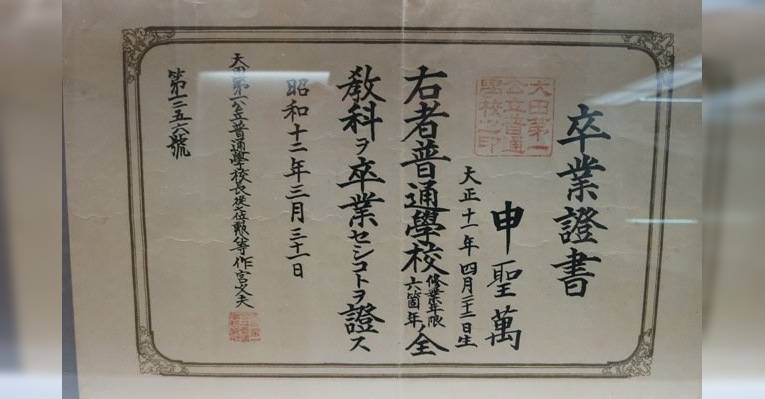 卒業證書
大田第一
公立普通
學校之印
申聖萬
大正十一年四月二十二日生
右者普通學校修業年限六箇年全
教科ヲ卒業セシコトヲ證ス
昭和十二年三月三十一日
大田第一公立普通學校長從七位勲八等作宮文夫
第一二五六號